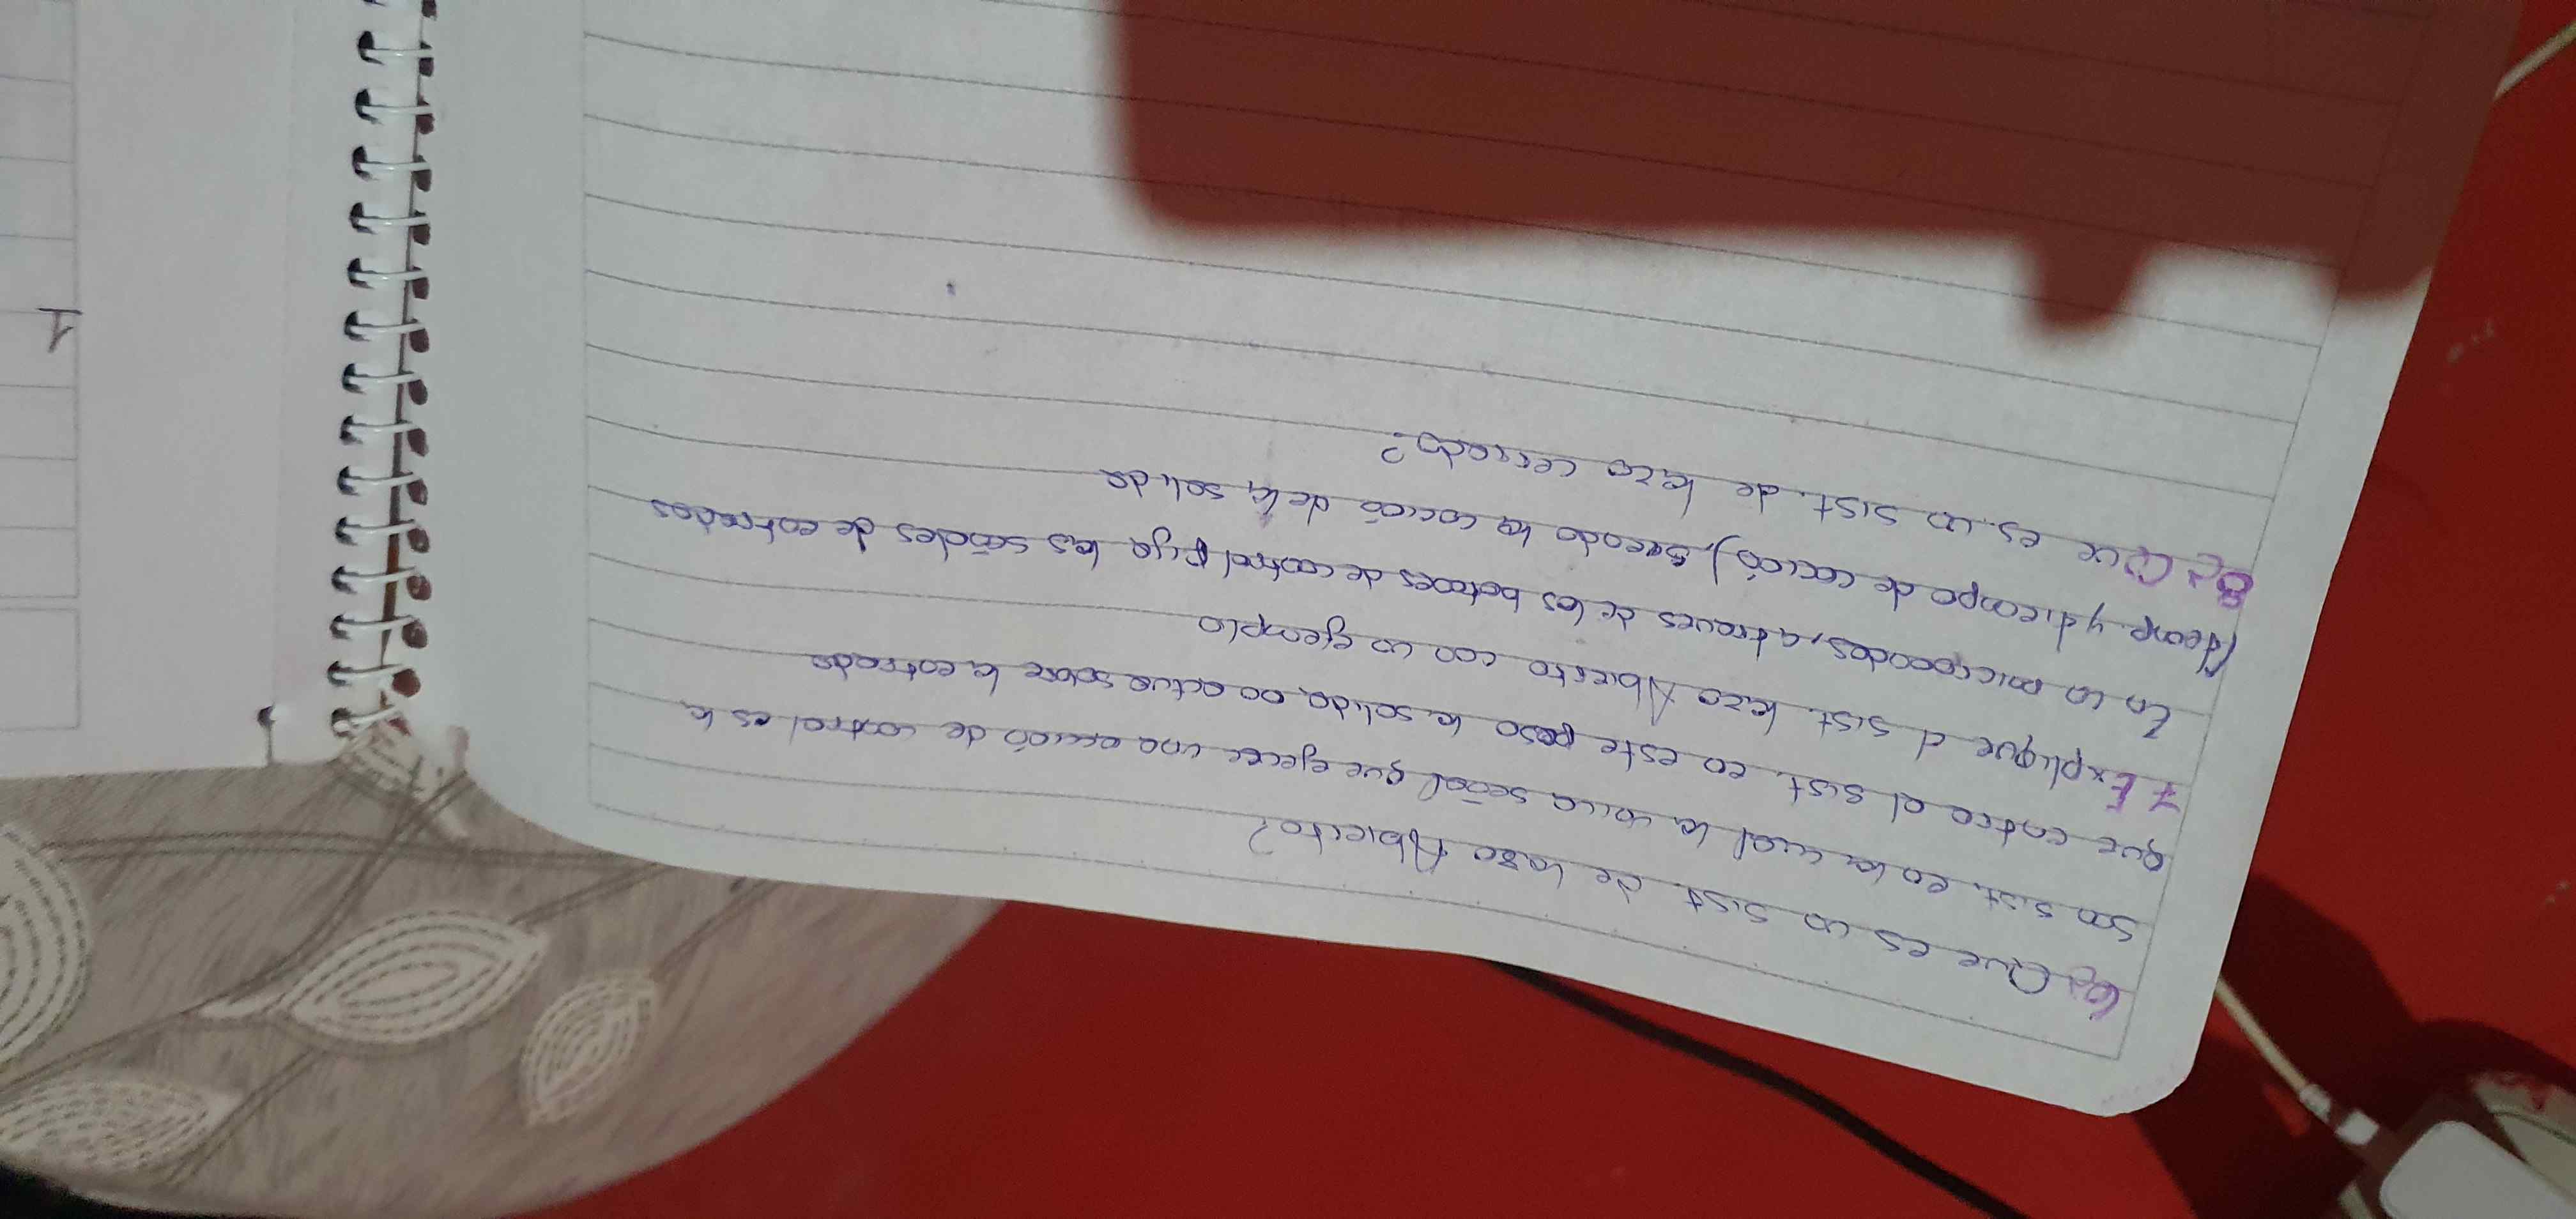 6¿Que es un sist. de laso Abierto?
Son sist. en la cual la unica señal que ejerce una acción de control es la
que entra al sist. en este paso la salida, no actua sobre la entrada
7 Explique el sist. lazo Abierto con un ejemplo
En un microondas, a traves de los botones de control fija las señales de entradas
(temp y tiempo de cocción), siendo la cocción de la salida
8¿Que es un sist. de lazo cerrado?
1